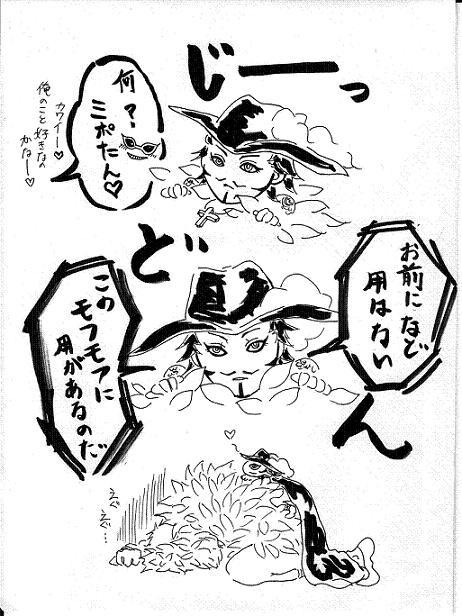 じーーっ
何?
ミホたん♡
カワイー♡
俺のこと好きなの
かなー♡
どーん
お前になど
用はない
この
モフモフに
用があるのだ
♡